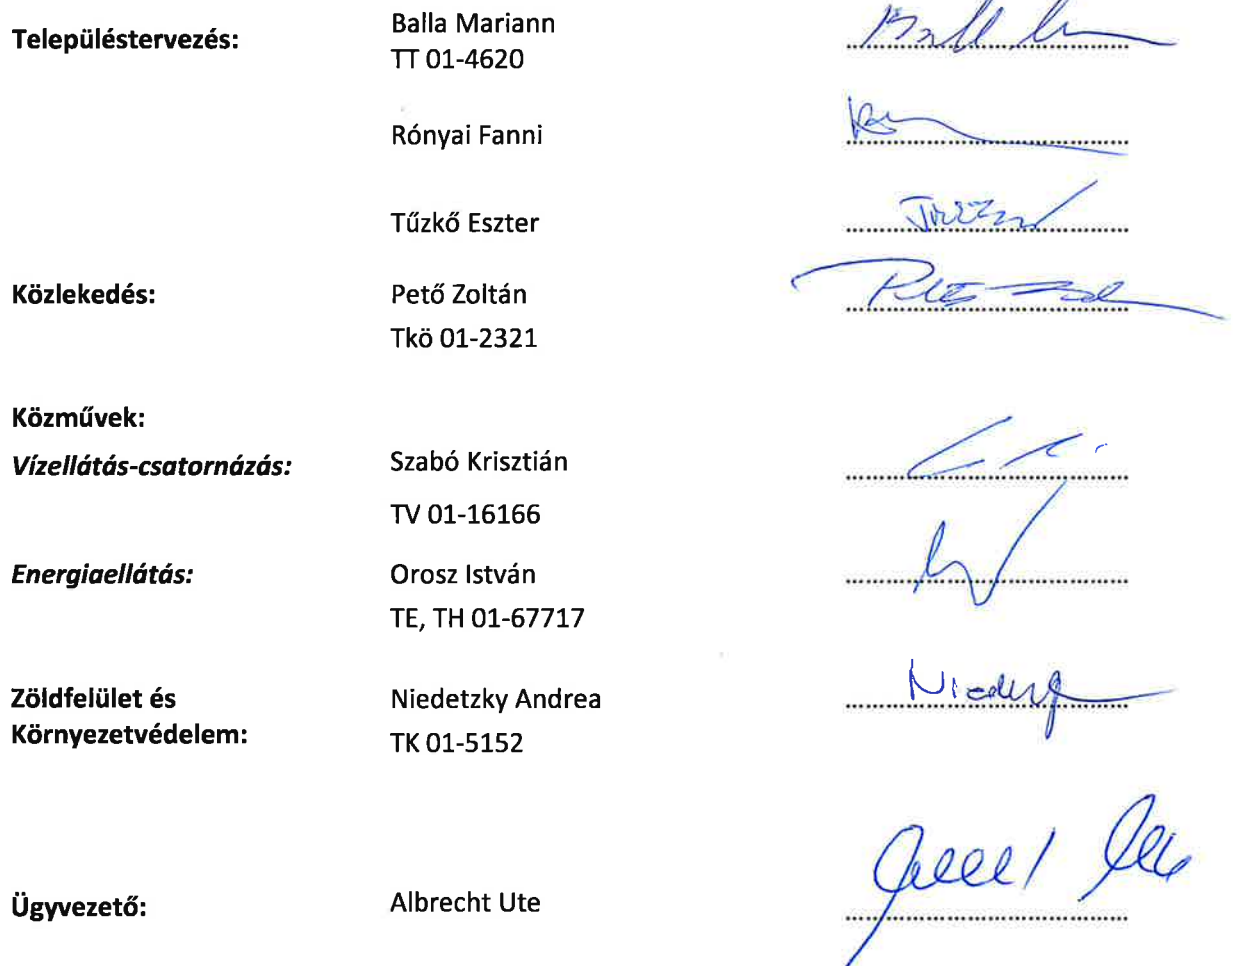 Településtervezés:
Balla Mariann
TT 01-4620
Rónyai Fanni
Tűzkő Eszter
Közlekedés:
Pető Zoltán
Tkö 01-2321
Közművek:
Vízellátás-csatornázás:
Szabó Krisztián
TV 01-16166
Energiaellátás:
Orosz István
TE, TH 01-67717
Zöldfelület és
Környezetvédelem:
Niedetzky Andrea
TK 01-5152
Ügyvezető:
Albrecht Ute